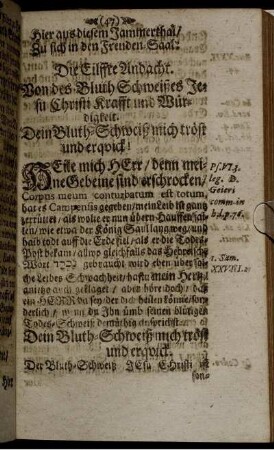 (47)
Hier aus diesem Jammerthal/
Zu sich in den Freuden-Saal.
Die Eilffte Andacht.
Von des Bluth-Schweißes Je-
su Christi Krafft und Wür-
digkeit.
Dein Bluth-Schweiß mich tröst
und erqvick!
HEile mich HErr/ denn mei-
ne Gebeine sind erschrocken/
Corpus meum conturbatum est totum,
hat es Campensis gegeben/ mein Leib ist ganz
zerrüttet/ als wolte er nun übern Hauffen fal-
len/ wie etwa der König Saul lang weg/ und
halb todt auff die Erde fiel/ als er die Todes-
Post bekam/ allwo gleichfalls das Hebreische
Wort נבהל gebraucht wird
cher Leibes Schwachheit
ein HERR da sey/ der dich heilen könne/ son-
derlich/ wenn du Ihn ümb seinen blutigen
Todes-Schweiß demüthig ansprichst
Dein Bluth-Schweiß mich tröst
und erqvick.
Der Bluth-Schweiß JEsu CHristi ist
son-
Ps. VI. 3.
leg. D.
Geieri
comm. in
h. l. p. 76.
1. Sam.
XXVIII. 2